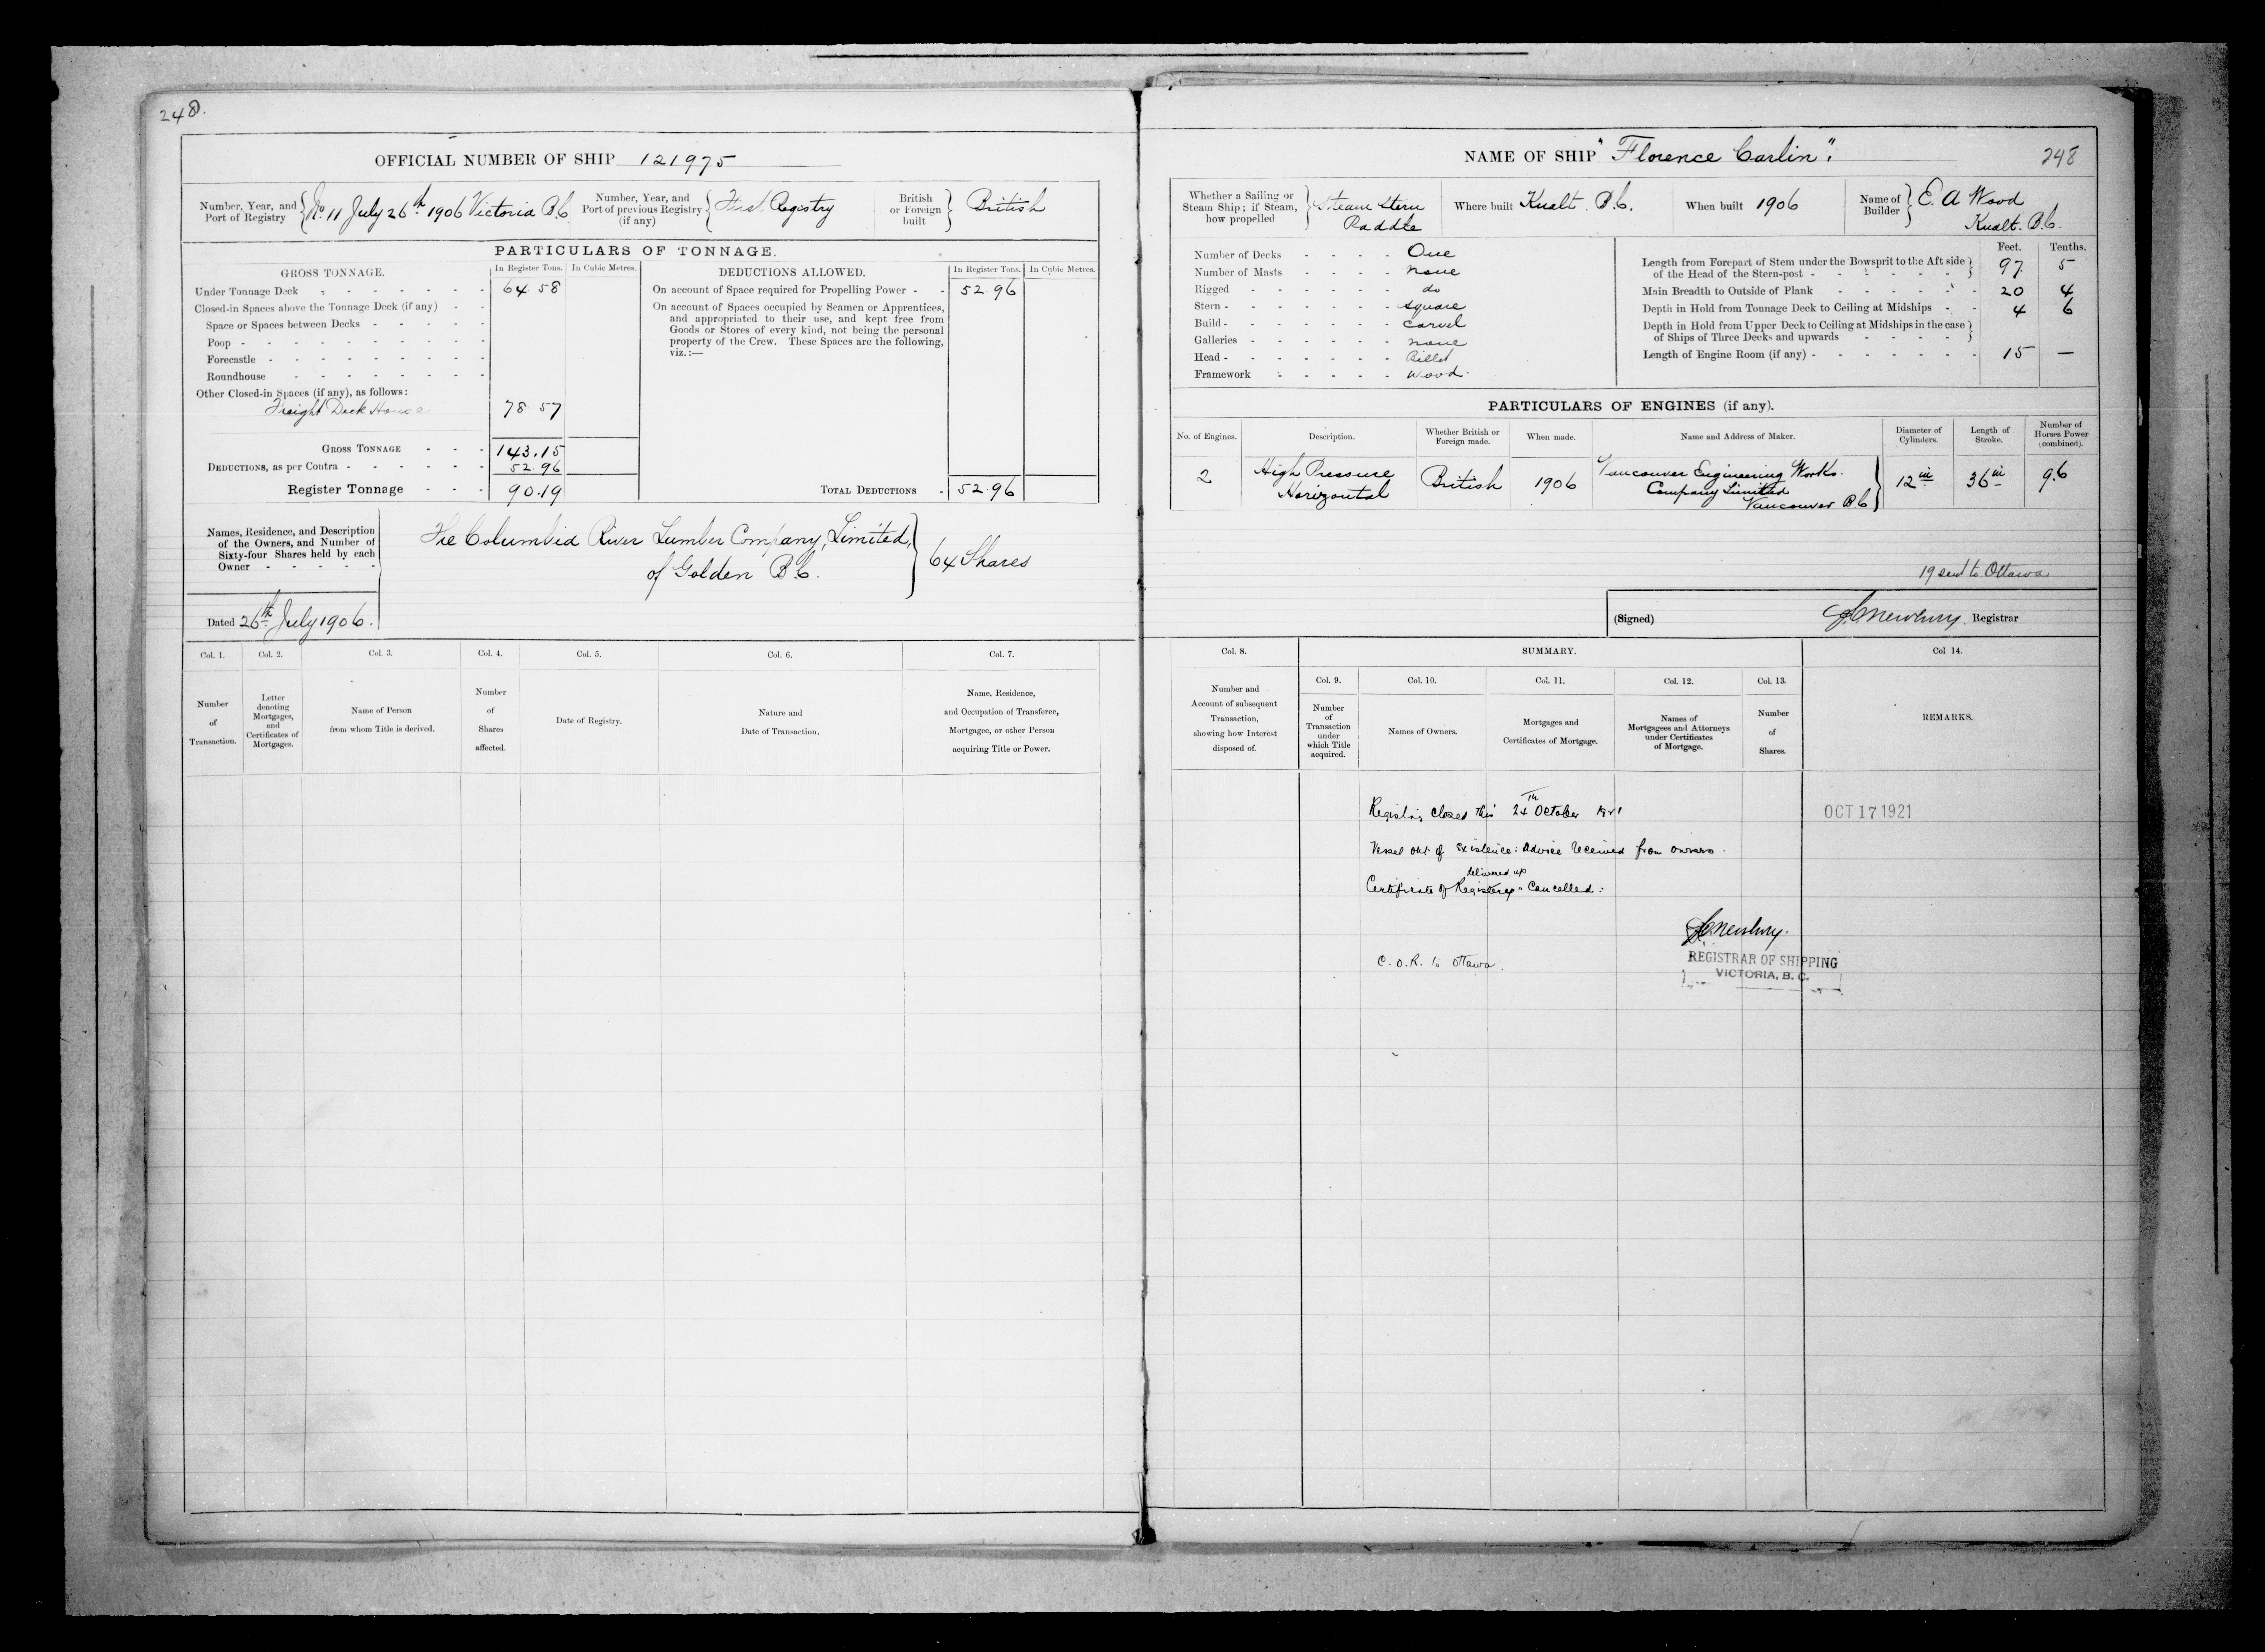 248.
OFFICIAL NUMBER OF SHIP 121975
Number, Year, and Port of Registry No. 11 July 26th 1906 Victoria B.C
Number, Year, and Port of previous Registry (if any) First Registry
British or Foreign built British
PARTICULARS OF TONNAGE.
GROSS TONNAGE. In Register Tons. In Cubic Metres.
Under Tonnage Deck 64.58
Closed-in Spaces above the Tonnage Deck (if any)
Space or Spaces between Decks
Poop
Forecastle
Roundhouse
Other Closed-in Spaces (if any), as follows:
Freight Deck House 78.57
GROSS TONNAGE 143.15
DEDUCTIONS, as per Contra 52.96
Register Tonnage 90.19
DEDUCTIONS ALLOWED. In Register Tons. In Cubic Metres.
On account of Space required for Propelling Power 52.96
On account of Spaces occupied by Seamen or Apprentices,
and appropriated to their use, and kept free from
Goods or Stores of every kind, not being the personal
property of the Crew. These Spaces are the following,
viz.:—
TOTAL DEDUCTIONS 52.96
Names, Residence, and Description
of the Owners, and Number of
Sixty-four Shares held by each
Owner
The Columbia River Lumber Company, Limited,
of Golden B.C.
64 Shares
Dated 26th July 1906.
Col. 1. Col. 2. Col. 3. Col. 4. Col. 5. Col. 6. Col. 7.
Number of Transaction.
Letter denoting Mortgages, and Certificates of Mortgages.
Name of Person from whom Title is derived.
Number of Shares affected.
Date of Registry.
Nature and Date of Transaction.
Name, Residence, and Occupation of Transferee, Mortgagee, or other Person acquiring Title or Power.
NAME OF SHIP "Florence Carlin".
248
Whether a Sailing or Steam Ship; if Steam, how propelled Steam Stern Paddle
Where built Kualt. B.C.
When built 1906
Name of Builder E. A Wood
Kualt. B.C.
Number of Decks One
Number of Masts none
Rigged do
Stern square
Build carvel
Galleries none
Head Billet
Framework wood.
Feet. Tenths.
Length from Forepart of Stem under the Bowsprit to the Aft side
of the Head of the Stern-post 97 5
Main Breadth to Outside of Plank 20 4
Depth in Hold from Tonnage Deck to Ceiling at Midships 4 6
Depth in Hold from Upper Deck to Ceiling at Midships in the case
of Ships of Three Decks and upwards
Length of Engine Room (if any) 15 —
PARTICULARS OF ENGINES (if any).
No. of Engines. Description. Whether British or Foreign made. When made. Name and Address of Maker. Diameter of Cylinders. Length of Stroke. Number of Horses Power (combined).
2 High Pressure Horizontal British 1906 Vancouver Engineering Works. Company Limited Vancouver B.C 12 in 36 in 9.6
19 sent to Ottawa
(Signed) Newbury. Registrar
Col. 8. SUMMARY. Col 14.
Col. 9. Col. 10. Col. 11. Col. 12. Col. 13.
Number and Account of subsequent Transaction, showing how Interest disposed of.
Number of Transaction under which Title acquired.
Names of Owners.
Mortgages and Certificates of Mortgage.
Names of Mortgagees and Attorneys under Certificates of Mortgage.
Number of Shares.
REMARKS.
Registry closed this 24th October 1921
OCT 17 1921
Vessel out of existence: Advice received from owners.
delivered up
Certificate of Registry Cancelled:
Newbury.
REGISTRAR OF SHIPPING
VICTORIA, B. C.
C.O.R. to Ottawa.